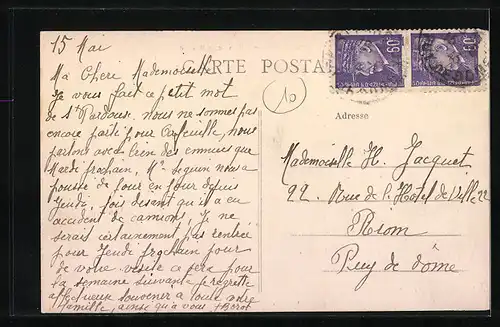 15 Mai
CARTE POSTALE
Ma Chere Mademoiselle
Je vous fait ce petit mot
de St Pardoux. nous ne sommes pas
encore parti pour Crefeuille, nous
partons avec bien des ennuies que
Mardi prochain, Mr Seguin nous a
pousse de jour en jour depuis
Jeudi, fois disant qu'il a eu
accident de camions, Je ne
serais certainement pas rentrée
pour Jeudi prochain pour
de votre visite ce sera pour
la semaine suivante je regrette
affectueux souvenir a toute votre
famille, ainsi qu'a vous
10
Adresse
Mademoiselle H. Jacquet
22 Rue de l'Hotel de Ville 22
Riom
Puy de dôme